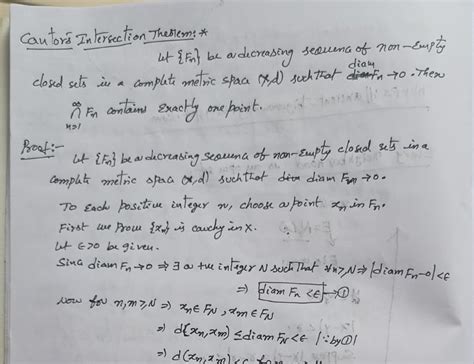 Cantor's Intersection Theorem:*
Let {Fn} be a decreasing sequena of non-Empty
closed sets in a complete metric spaca (X,d) such that diam Fn → 0. Then
∞
∩ Fn contains Exactly one point.
n=1
Proof:-
Let {Fn} be a decreasing sequena of non-Empty closed sets in a
complete metric spaca (X,d) such that diam Fn → 0.
To Each positive integer n, choose a point xn in Fn.
First we Prove {xn} is cauchy in X.
Let ϵ>0 be given.
Sinca diam Fn → 0 ⇒ ∃ a +ve integer N such that ∀ n ≥ N ⇒ |diam Fn-0| < ϵ
⇒ diam Fn < ϵ → ①
Now for n,m ≥ N ⇒ xn ∈ FN, xm ∈ FN
⇒ d(xn,xm) ≤ diam FN < ϵ |∵ by ①|
⇒ d(xn,xm) < ϵ